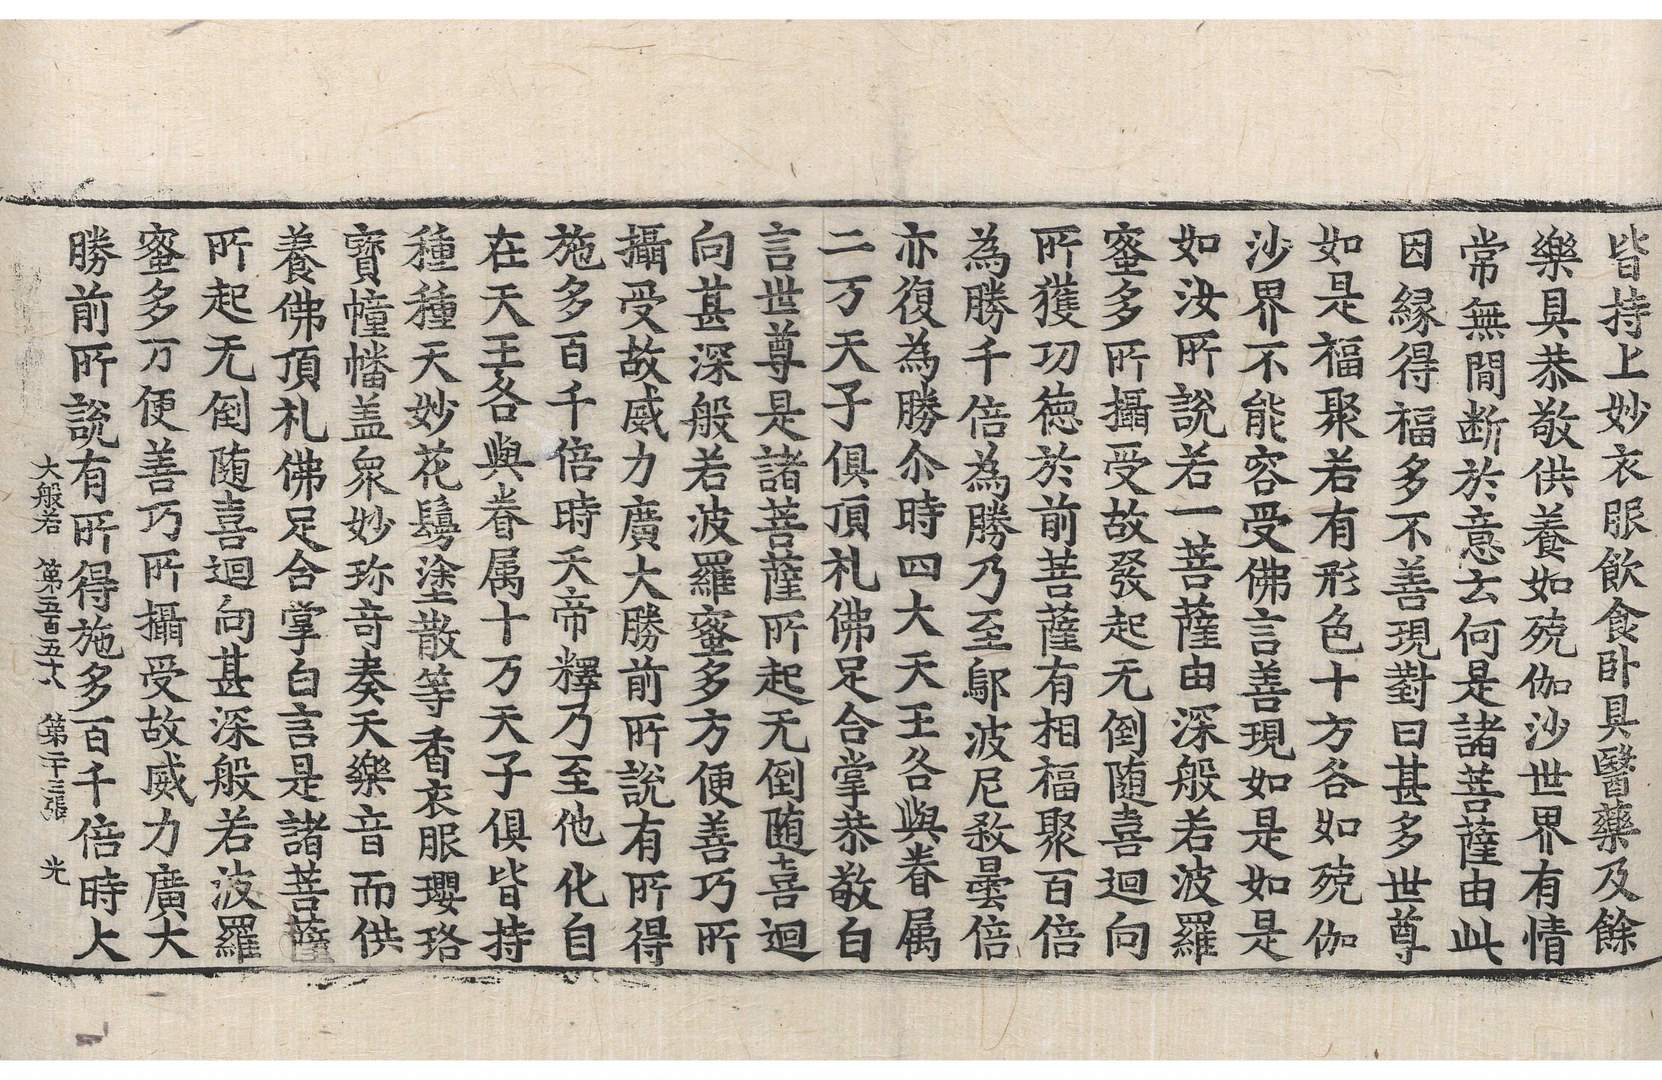 皆持上妙衣服飲食卧具醫藥及餘
樂具恭敬供養如殑伽沙世界有情
常無間断於意云何是諸菩薩由此
因縁得福多不善現對曰甚多世尊
如是福聚若有形色十方各如殑伽
沙界不能容受佛言善現如是如是
如汝所說若一菩薩由深般若波羅
蜜多所攝受故發起无倒随喜迴向
所獲功徳於前菩薩有相福聚百倍
為勝千倍為勝乃至鄔波尼殺曇倍
亦復為勝尒時四大天王各與眷属
二万天子俱頂礼佛足合掌恭敬白
言世尊是諸菩薩所起无倒随喜迴
向甚深般若波羅蜜多方便善巧所
攝受故威力廣大勝前所說有所得
施多百千倍時天帝釋乃至他化自
在天王各與眷属十万天子俱皆持
種種天妙花鬘塗散等香衣服瓔珞
寳幢幡盖衆妙珎奇奏天樂音而供
養佛頂礼佛足合掌白言是諸菩薩
所起无倒随喜迴向甚深般若波羅
蜜多方便善巧所攝受故威力廣大
勝前所說有所得施多百千倍時大
大般若 第五百五十 第二十三張 光